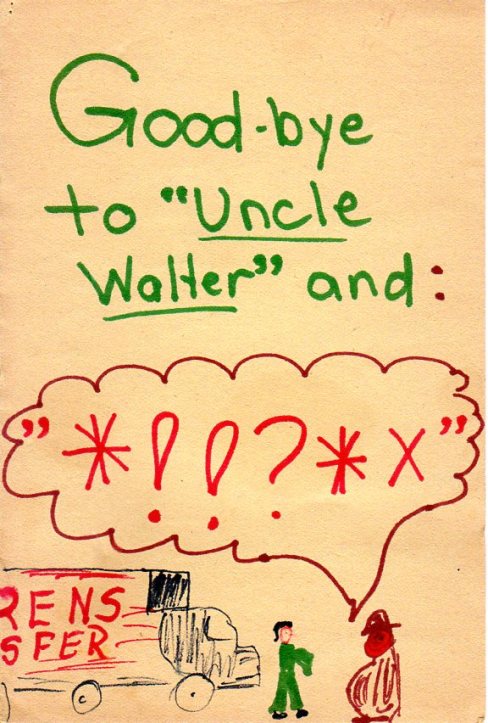 Good-bye
to "Uncle
Walter" and:
"*!!?*x"
RENS
SFER